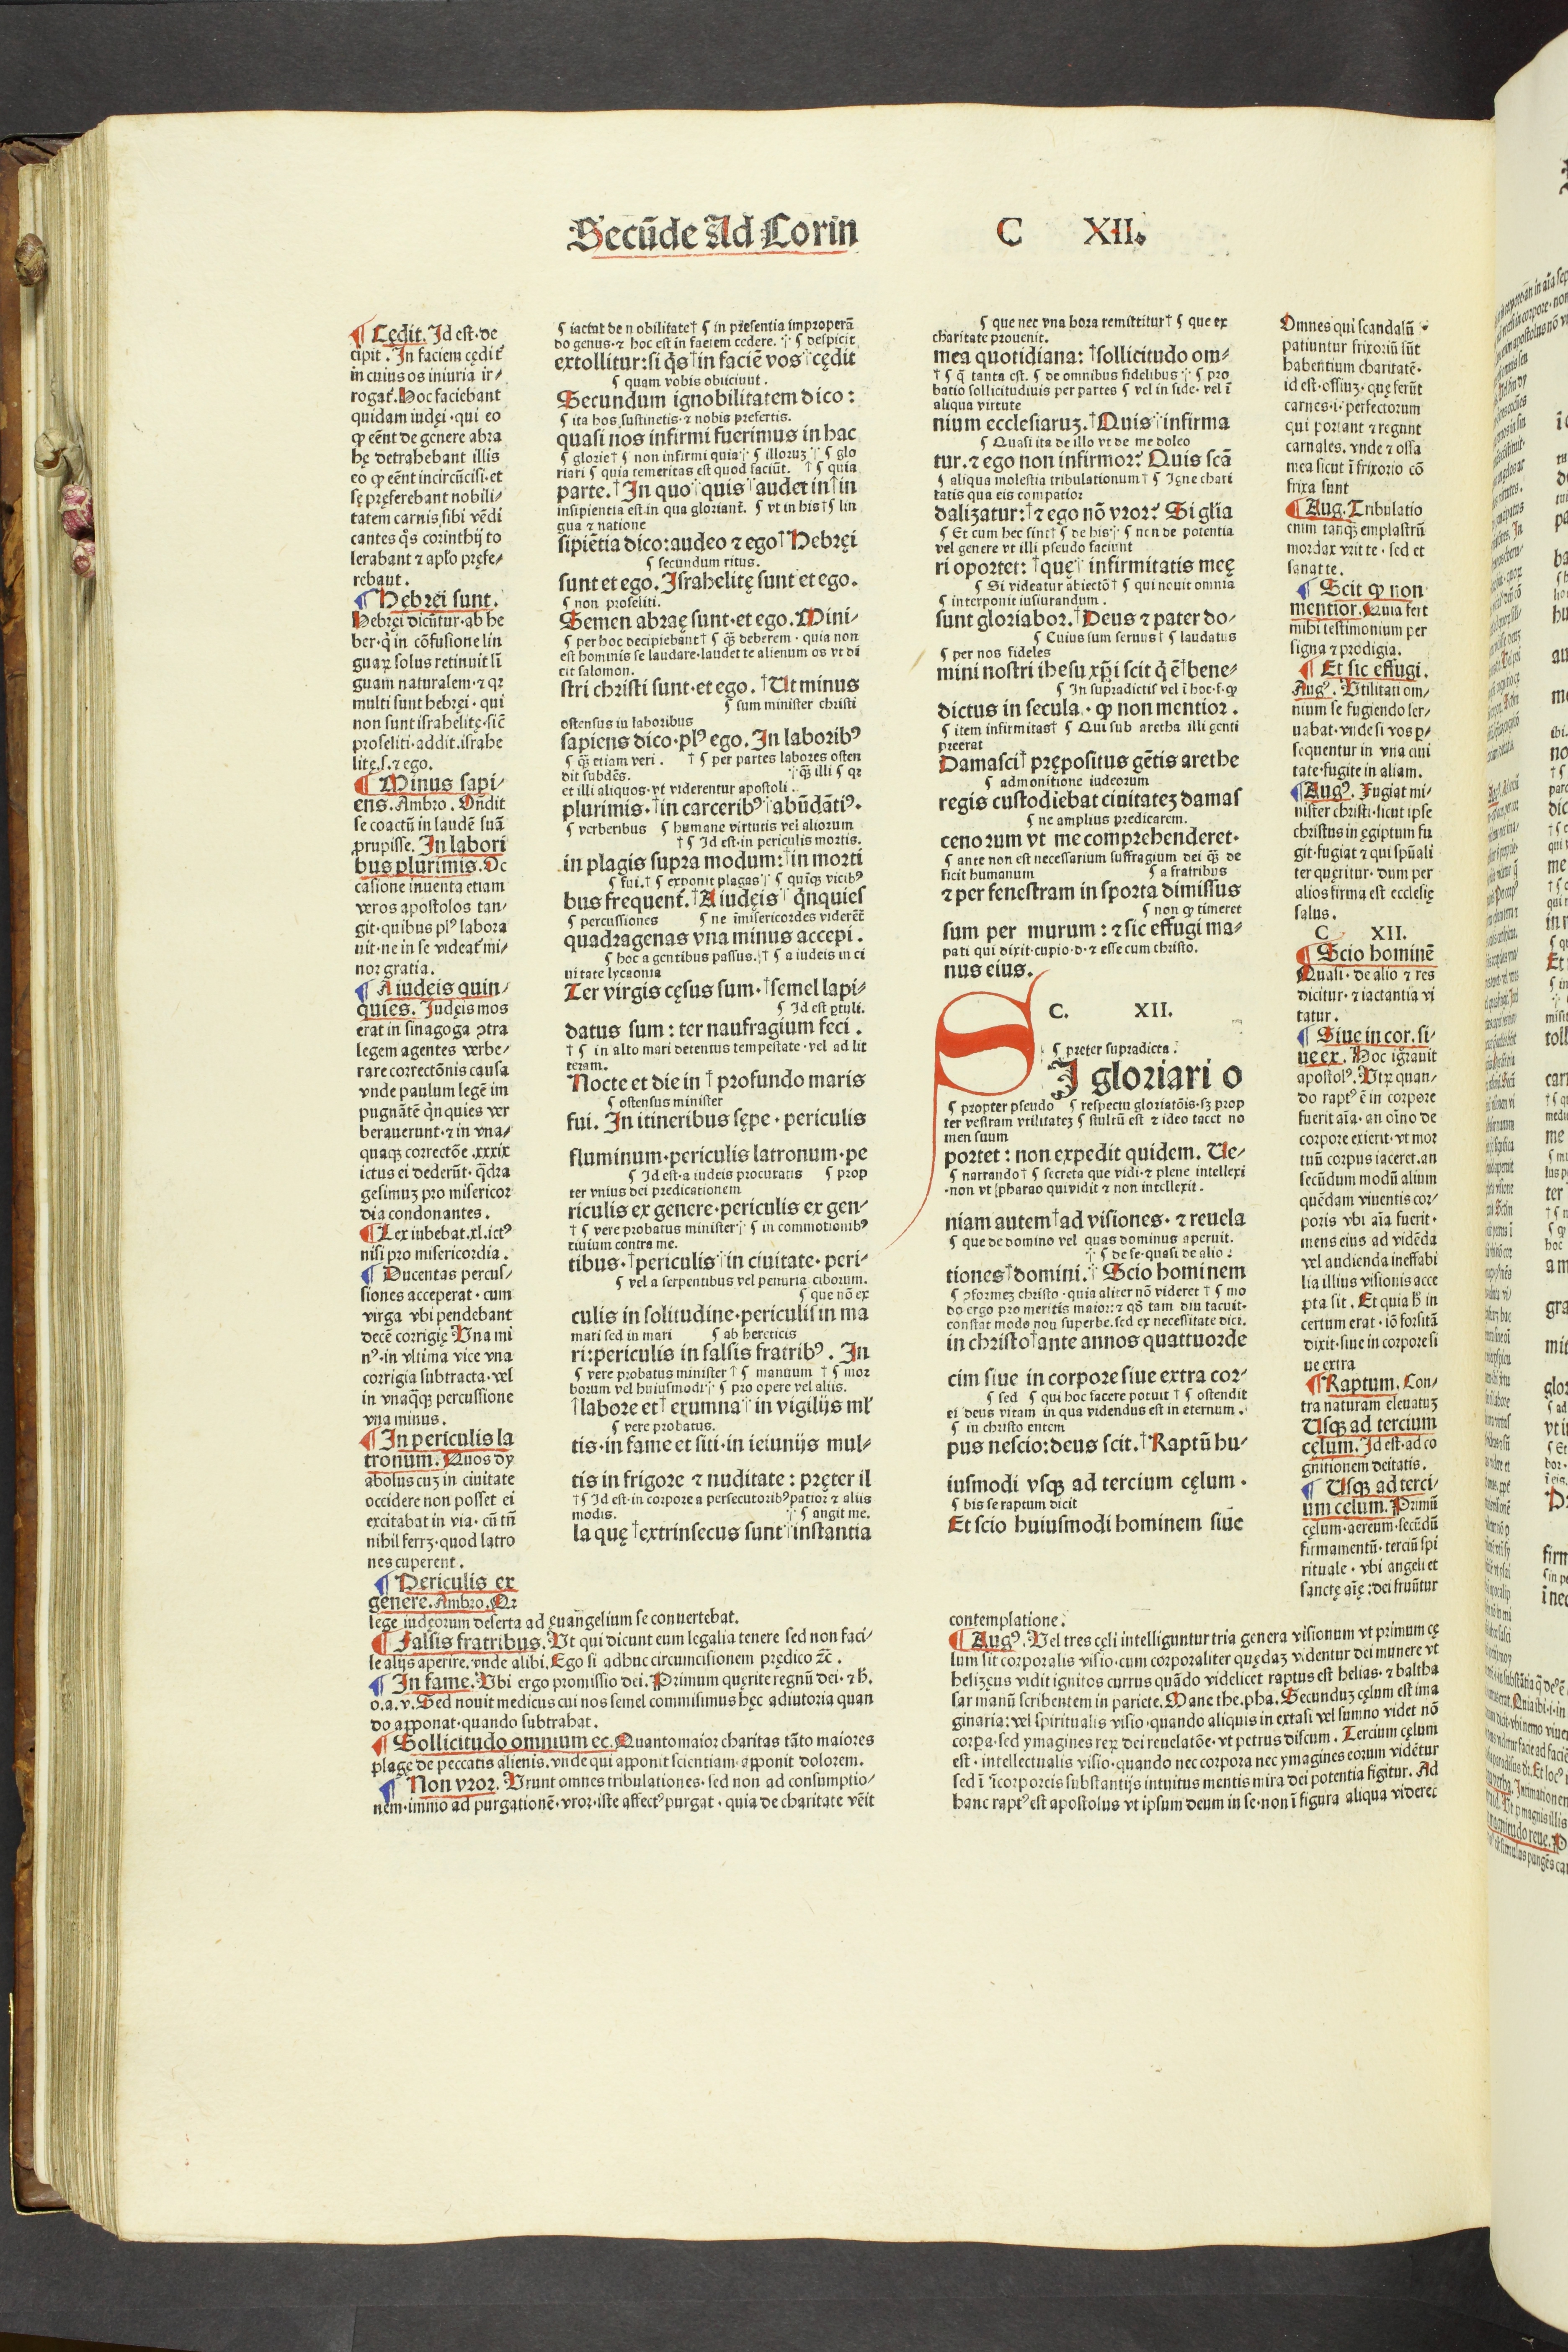 Secūde Ad Corin
C XII.
¶ Cędit. Id est·de
cipit. In faciem cędit᷑
in cuius os iniuria ir⸗
rogat᷑. Hoc faciebant
quidam iudęi·qui eo
ꝙ eēnt de genere abra
hę detrahebant illis
eo ꝙ eēnt incircūcisi·et
sę pręferebant nobili⸗
tatem carnis sibi vēdi
cantes q̄s corinthij to
lerabant ⁊ apło pręfe⸗
rebant.
¶ Hebręi sunt.
Hebręi dicūtur·ab he
ber·q̇ in cōfusione lin
guaꝝ solus retinuit lī
guam naturalem·⁊ qꝛ
multi sunt hebręi·qui
non sunt israhelitę·sic̄
proseliti·addit.israhe
litę.s.⁊ ego.
¶ Minus sapi⸗
ens. Ambro. On̄dit
se coactū in laudē suā
prupisse. In labori
bus plurimis. Oc
casione inuenta etiam
veros apostolos tan⸗
git·quibus plꝰ labora
uit·ne in se videat᷑ mi⸗
nor gratia.
¶ A iudęis quin⸗
quies. Iudęis mos
erat in sinagoga ↄtra
legem agentes verbe⸗
rare correctōnis causa
vnde paulum legē im
pugnātē q̇nquies ver
berauerunt·⁊ in vna⸗
quaqꝫ correctōe .xxxix
ictus ei dederūt·q̄dra
gesimuꝫ pro misericor
dia condonantes.
¶ Lex iubebat.xl.ictꝰ
nisi pro misericordia.
¶ Ducentas percus⸗
siones acceperat·cum
virga vbi pendebant
decē corrigię Vna mi
nꝰ·in vltima vice vna
corrigia subtracta·vel
in vnaq̄qꝫ percussione
vna minus.
¶ In periculis la
tronum. Quos dy
abolus cuꝫ in ciuitate
occidere non posset ei
excitabat in via·cū tn̄
nihil ferrꝫ·quod latro
nes cuperent.
¶ Periculis ex
genere. Ambro. Qꝛ
lege iudęorum deserta ad ęuangelium se conuertebat.
¶ Falsis fratribus. Vt qui dicunt eum legalia tenere sed non faci⸗
le alijs aperire.vnde alibi. Ego si adhuc circumcisionem prędico ⁊c̄.
¶ In fame. Vbi ergo promissio dei. Primum quęrite regnū dei·⁊ h̄.
o.a.v. Sed nouit medicus cui nos semel commisimus hęc adiutoria quan
do apponat·quando subtrahat.
¶ Sollicitudo omnium ec. Quanto maior charitas tāto maiores
plagę de peccatis alienis.vnde qui apponit scientiam·apponit dolorem.
¶ Non vror. Vrunt omnes tribulationes·sed non ad consumptio⸗
nem·immo ad purgationē·vror·iste affectꝰ purgat·quia de charitate vēit
¶ iactat de nobilitate† ¶ in presentia improperā
do genus·⁊ hoc est in faciem cedere. ¶ despicit
extollitur:si q̄s†in faciē vos cędit
¶ quam vobis obiiciunt.
Secundum ignobilitatem dico:
¶ ita hos sustinetis·⁊ nobis prefertis.
quasi nos infirmi fuerimus in hac
¶ glorie† ¶ non infirmi quia ¶ illoruꝫ ¶ glo
riari ¶ quia temeritas est quod faciūt. † ¶ quia
parte.†In quo quis audet in†in
insipientia est·in qua gloriant᷑. ¶ vt in his†¶ lin
gua ⁊ natione
sipiētia dico:audeo ⁊ ego†Hebręi
¶ secundum ritus.
sunt et ego. Israhelitę sunt et ego.
¶ non proseliti.
Semen abraę sunt·et ego. Mini⸗
¶ per hoc decipiebant† ¶ q̄ꝫ deberem·quia non
est hominis se laudare·laudet te alienum os vt di
cit salomon.
stri christi sunt·et ego. †Ut minus
¶ sum minister christi
ostensus in laboribus
sapiens dico·plꝰ ego. In laboribꝰ
¶ q̄ꝫ etiam veri. † ¶ per partes labores osten
dit subdēs. q̄ꝫ illi ¶ qꝛ
et illi aliquos·vt viderentur apostoli.
plurimis·†in carceribꝰ abūdātiꝰ.
¶ verberibus ¶ humane virtutis vel aliorum
†¶ Id est·in periculis mortis.
in plagis supra modum:†in morti
¶ fui.† ¶ exponit plagas ¶ quīqꝫ vicibꝰ
bus frequent᷑.†A iudęis q̇nquies
¶ percussiones ¶ ne īmisericordes viderēt᷑
quadragenas vna minus accepi.
¶ hoc a gentibus passus.† ¶ a iudeis in ci
uitate lycaonia
Ter virgis cęsus sum·†semel lapi⸗
¶ Id est ꝑtuli.
datus sum: ter naufragium feci.
† ¶ in alto mari detentus tempestate·vel ad lit
teram.
Nocte et die in † profundo maris
¶ ostensus minister
fui. In itineribus sępe·periculis
fluminum·periculis latronum·pe
¶ Id est·a iudeis procuratis ¶ prop
ter vnius dei predicationem
riculis ex genere·periculis ex gen⸗
† ¶ vere probatus minister ¶ in commotionibꝰ
ciuium contra me.
tibus·†periculis in ciuitate·peri⸗
¶ vel a serpentibus vel penuria ciborum.
¶ que nō ex
culis in solitudine·periculis in ma
mari sed in mari ¶ ab hereticis
ri:periculis in falsis fratribꝰ. In
¶ vere probatus minister † ¶ manuum † ¶ mor
borum vel huiusmodi ¶ pro opere vel aliis.
†labore et† erumna in vigilijs ml̄
¶ vere probatus.
tis·in fame et siti·in ieiunijs mul⸗
tis in frigore ⁊ nuditate: pręter il
†¶ Id est·in corpore a persecutoribꝰ patior ⁊ aliis
modis. ¶ angit me.
la quę †extrinsecus sunt instantia
¶ que nec vna hora remittitur† ¶ que ex
charitate prouenit.
mea quotidiana: †sollicitudo om⸗
† ¶ q̄ tanta est. ¶ de omnibus fidelibus ¶ pro
batio sollicitudiuis per partes ¶ vel in fide·vel ī
aliqua virtute
nium ecclesiaruꝫ.†Quis infirma
¶ Quasi ita de illo vt de me doleo
tur.⁊ ego non infirmor? Quis scā
¶ aliqua molestia tribulationum† ¶ Igne chari
tatis qua eis compatior
dalizatur:†⁊ ego nō vror? Si gl̄ia
¶ Et cum hec sint† ¶ de his ¶ non de potentia
vel genere vt illi pseudo faciunt
ri oportet: †quę infirmitatis meę
¶ Si videatur abiectō† ¶ qui nouit omnia
¶ interponit iusiurandum.
sunt gloriabor.†Deus ⁊ pater do⸗
¶ Cuius sum seruus† ¶ laudatus
¶ per nos fideles
mini nostri ihesu xp̄i scit q̇ ē†bene⸗
¶ In supradictis vel ī hoc·s·ꝙ
dictus in secula·ꝙ non mentior.
¶ item infirmitas† ¶ Qui sub aretha illi genti
preerat
Damasci†prępositus gētis arethe
¶ admonitione iudeorum
regis custodiebat ciuitateꝫ damas
¶ ne amplius predicarem.
cenorum vt me comprehenderet.
¶ ante non est necessarium suffragium dei q̄ꝫ de
ficit humanum ¶ a fratribus
⁊ per fenestram in sporta dimissus
¶ non ꝙ timeret
sum per murum:⁊ sic effugi ma⸗
pati qui dixit·cupio·d·⁊ esse cum christo.
nus eius.
C. XII.
¶ preter supradicta.
SI gloriari o
¶ propter pseudo ¶ respectu gloriatōis·sꝫ prop
ter vestram vtilitateꝫ ¶ stultū est ⁊ ideo tacet no
men suum
portet: non expedit quidem. Ue⸗
¶ narrando† ¶ secreta que vidi·⁊ plene intellexi
·non vt pharao qui vidit ⁊ non intellexit.
niam autem†ad visiones·⁊ reuela
¶ que de domino vel quas dominus aperuit.
¶ de se·quasi de alio.
tiones†domini. Scio hominem
¶ ↄformeꝫ christo·quia aliter nō videret † ¶ mo
do ergo pro meritis maior:⁊ qđ tam diu tacuit·
constat modo non superbe·sed ex necessitate dici.
in christo†ante annos quattuorde
cim siue in corpore siue extra cor⸗
¶ sed ¶ qui hoc facere potuit † ¶ ostendit
ei deus vitam in qua videndus est in eternum.
¶ in christo entem
pus nescio:deus scit.†Raptū hu⸗
iusmodi vsqꝫ ad tercium cęlum.
¶ bis se raptum dicit
Et scio huiusmodi hominem siue
Omnes qui scandalū
patiuntur frixoriū sūt
habentium charitatē·
id est·ossiuꝫ·quę ferūt
carnes·i·perfectorum
qui portant ⁊ regunt
carnales. vnde ⁊ ossa
mea sicut ī frixorio cō
frixa sunt
¶ Aug. Tribulatio
enim tanqꝫ emplastrū
mordax vrit te·sed et
sanat te.
¶ Scit ꝙ non
mentior. Quia fert
mihi testimonium per
signa ⁊ prodigia.
¶ Et sic effugi.
Augꝰ. Vtilitati om⸗
nium se fugiendo ser⸗
uabat·vnde si vos ꝑ⸗
sequentur in vna ciui
tate·fugite in aliam.
¶ Augꝰ. Fugiat mi⸗
nister christi·sicut ipse
christus in ęgiptum fu
git·fugiat ⁊ qui spūali
ter quęritur·dum per
alios firma est ecclesię
salus.
C XII.
¶ Scio hominē
Quasi·de alio ⁊ res
dicitur·⁊ iactantia vi
tatur.
¶ Siue in cor. si⸗
ue ex. Hoc igrāuit
apostolꝰ. Vtꝝ quan⸗
do raptꝰ ē in corpore
fuerit aīa·an oīno de
corpore exierit·vt mor
tuū corpus iaceret.an
secūdum modū alium
quēdam viuentis cor⸗
poris vbi aīa fuerit·
mens eius ad vidēda
vel audienda ineffabi
lia illius visionis acce
pta sit. Et quia h̄ in
certum erat·iō forsitā
dixit·siue in corpore si
ue extra
¶ Raptum. Con⸗
tra naturam eleuatuꝫ
Usqꝫ ad tercium
cęlum. Id est·ad co
gnitionem deitatis.
¶ Usqꝫ ad terci⸗
um celum. Primū
cęlum·aereum·secūdū
firmamentū·terciū spi
rituale·vbi angeli et
sanctę aīę:dei fruūtur
contemplatione.
¶ Augꝰ. Vel tres cęli intelliguntur tria genera visionum vt primum cę
lum sit corporalis visio·cum corporaliter quędaꝫ videntur dei munere vt
helizęus vidit ignitos currus quādo videlicet raptus est helias·⁊ baltha
sar manū scribentem in pariete. Mane the.pha. Secunduꝫ cęlum est ima
ginaria:vel spiritualis visio·quando aliquis in extasi vel sumno videt nō
corpa·sed ymagines reꝝ dei reuelatōe·vt petrus discum. Tercium cęlum
est·intellectualis visio·quando nec corpora nec ymagines eorum vidētur
sed ī īcorporeis substantijs intuitus mentis mira dei potentia figitur. Ad
hanc raptꝰ est apostolus vt ipsum deum in se·non ī figura aliqua videret